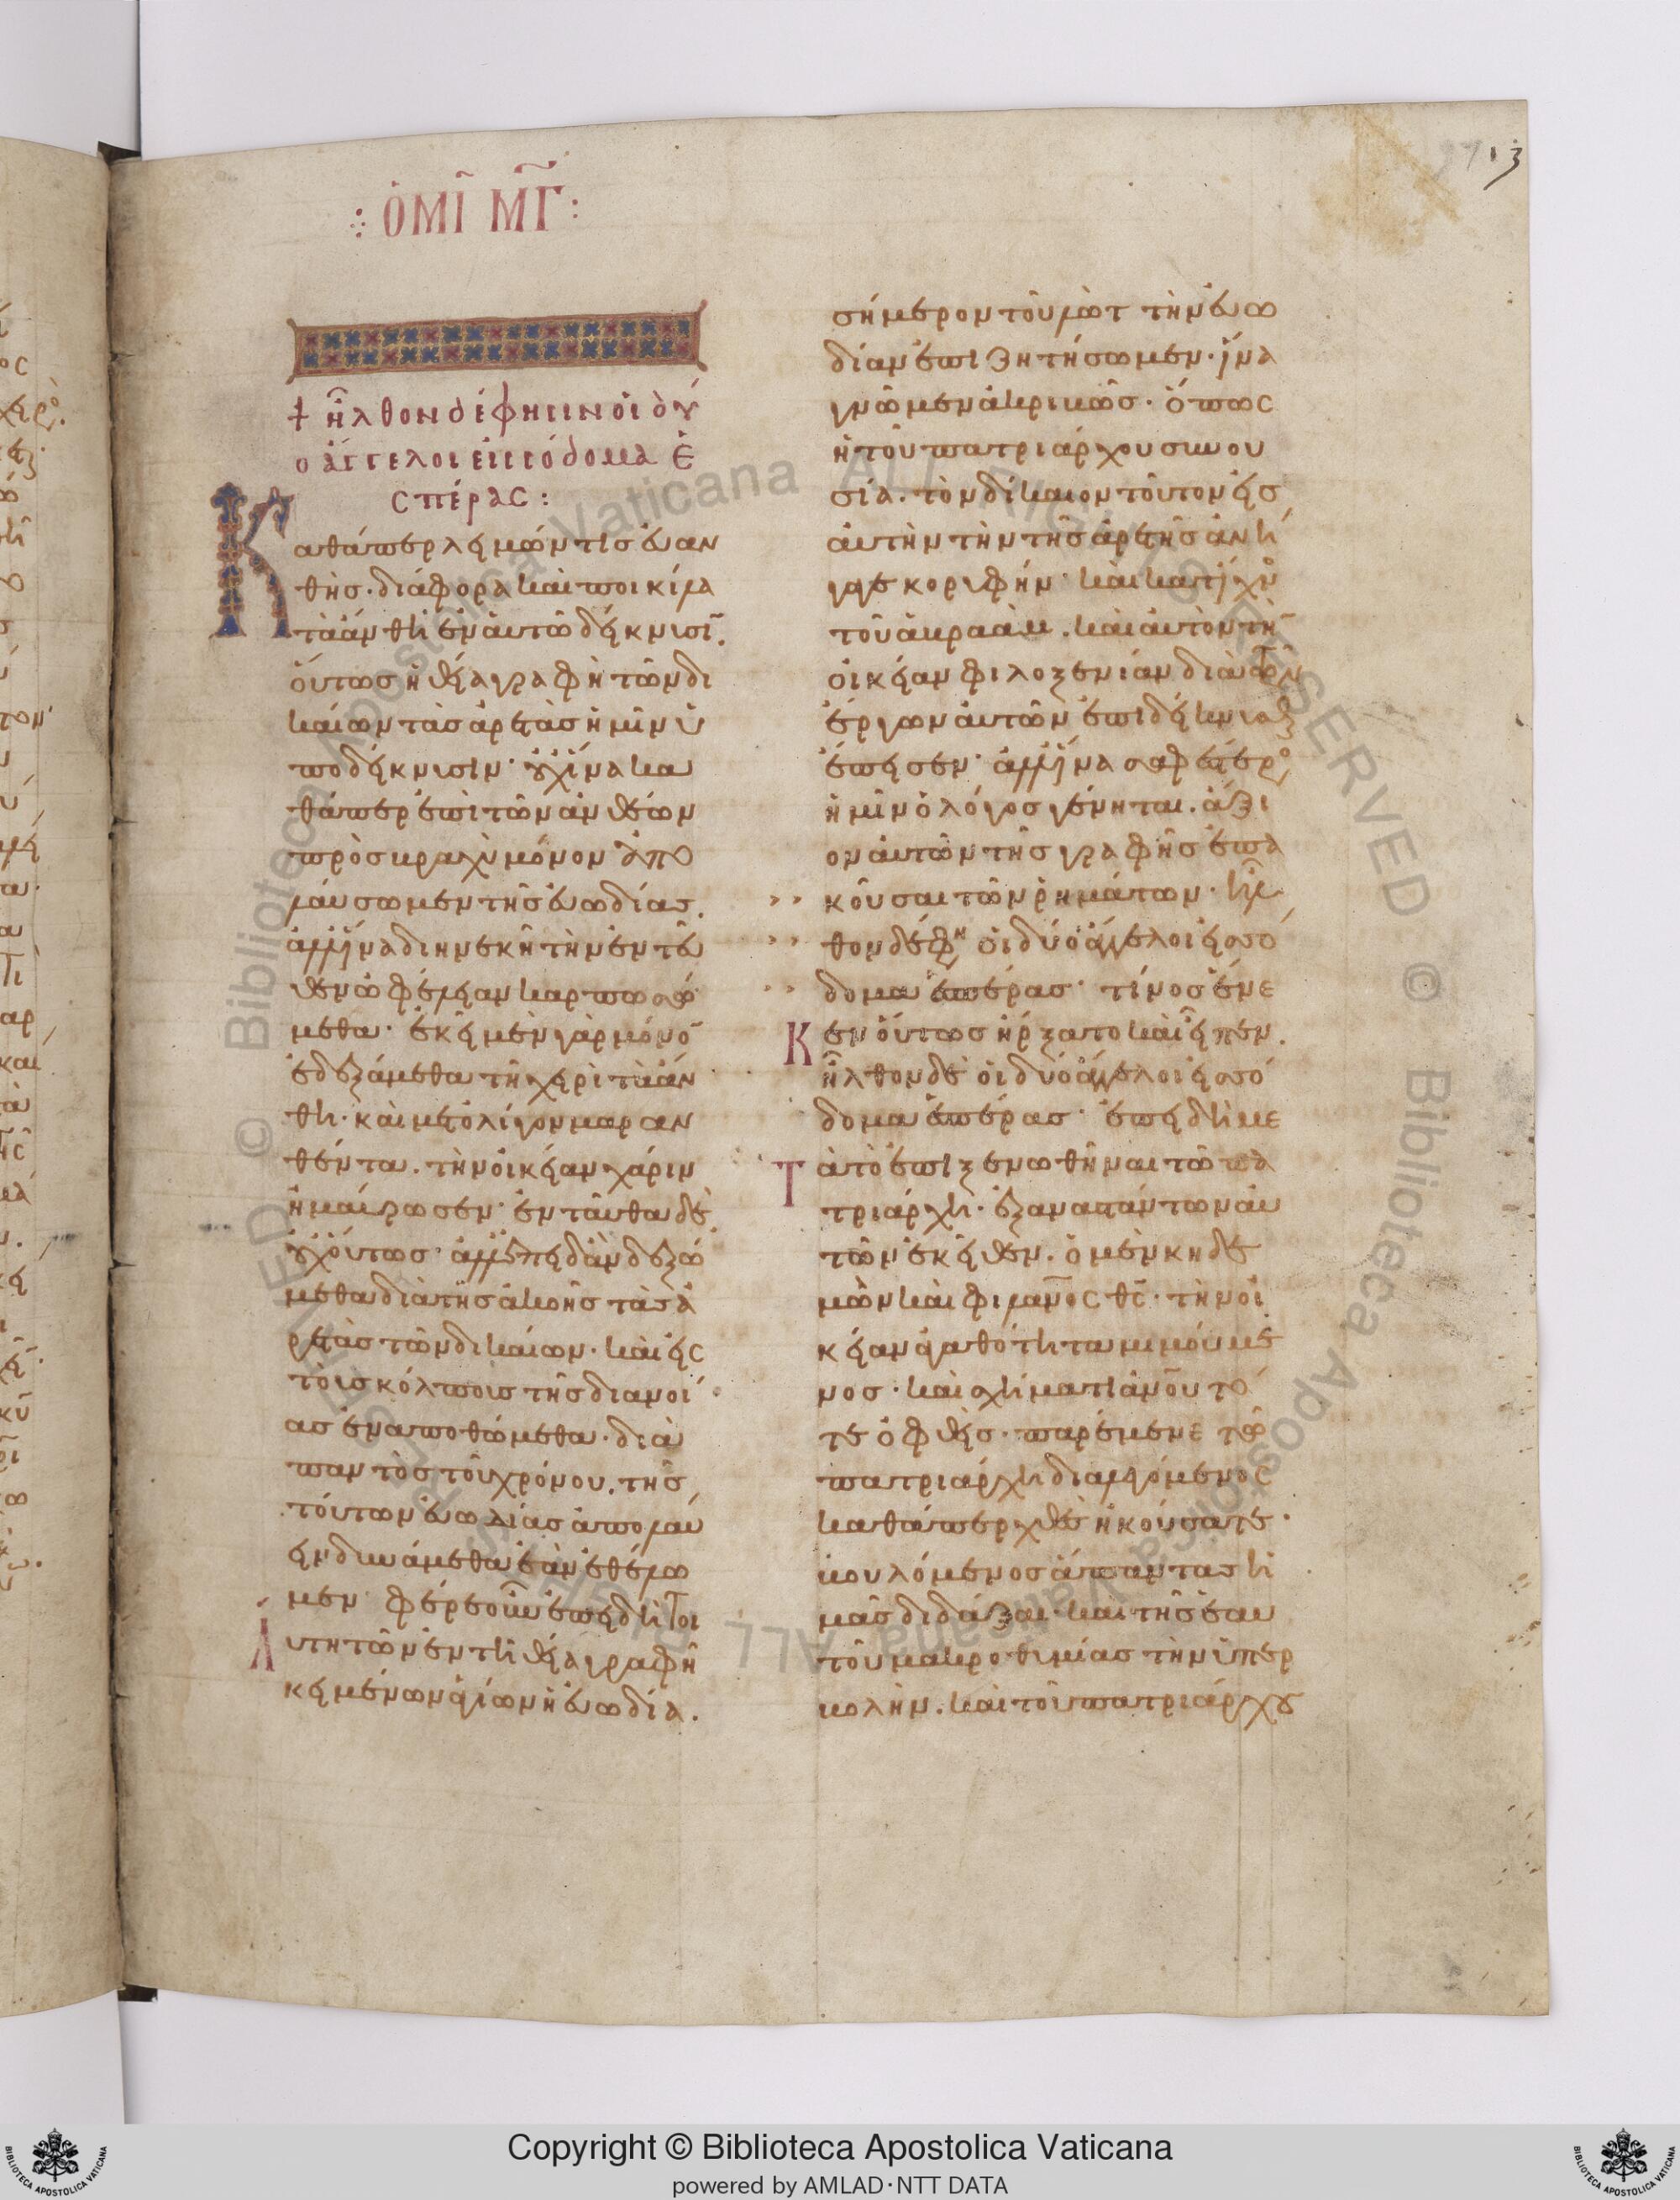 ὉΜΙ ΜΓ
13
ἦλθον δέ φησιν οἱ δύ
ο ἄγγελοι εἰς σόδομα ἑ
σπέρας:
Καθάπερ λειμών τις εὐαν
θὴς. διάφορα καὶ ποικίλα
τὰ ἄνθη ἐν αὐτῶ δείκνυσι.
οὕτως ἡ θεία γραφὴ τῶν δι
καίων τὰς ἀρετὰς ἡμῖν ὑ
ποδείκνυσιν. οὐχ ἵνα κα
θάπερ ἐπὶ τῶν ἀνθέων
πρὸς βραχὺ μόνον ἀπο
λαύσωμεν τῆς εὐωδίας.
ἀλλ ἵνα διηνεκῆ τὴν ἐντεῦ
θεν ὠφέλειαν καρπωσώ
μεθα. ἐκεῖ μὲν γὰρ μόνον
ἐδεξάμεθα τῆ χειρὶ τὰ ἄν
θη. καὶ μετολίγον μαραν
θέντα. τὴν οἰκείαν χάριν
ἠμαύρωσεν. ἐνταῦθα δὲ
οὐχ οὕτως. ἀλλ ἐπειδὰν δεξώ
μεθα διὰ τῆς ἀκοῆς τὰς ἀ
ρετὰς τῶν δικαίων. καὶ εἰς
τοὺς κόλπους τῆς διανοί
ας ἐναποθώμεθα. διὰ
παντὸς τοῦ χρόνου. τῆς
τούτων εὐωδίας ἀπολαύ
ειν δυνάμεθα ἐὰν ἐθέλω
μεν. φέρε οὖν ἐπειδὴ τοι
αύτη τῶν ἐν τῆ θεία γραφῆ
κειμένων ἁγίων ἡ εὐωδία.
σήμερον τοῦ λὼτ τὴν εὐω
δίαν ἐπιζητήσωμεν. ἵνα
γνῶμεν ἀκριβῶς. ὅπως
ἡ τοῦ πατριάρχου συνου
σία. τὸν δίκαιον τοῦτον εἰς
αὐτὴν τὴν τῆς ἀρετῆς ἀνή
γαγε κορυφήν. καὶ κατίχνος
τοῦ ἀβραάμ. καὶ αὐτὸν τὴν
οἰκείαν φιλοξενίαν διὰ τῶν
ἔργων αὐτῶν ἐπιδείκνυσθαι
ἔπεισεν. ἀλλ ἵνα σαφέστερος
ἡμῖν ὁ λόγος γένηται. ἄξι
ον αὐτῶν τῆς γραφῆς ἐπα
κοῦσαι τῶν ῥημάτων. ἦλ
θον δέ φη οἱ δύο ἄγγελοι εἰς σό
δομα ἑσπέρας. τίνος ἕνε
κεν οὕτως ἤρξατο καὶ εἶπεν.
ἦλθον δὲ οἱ δύο ἄγγελοι εἰς σό
δομα ἑσπέρας. ἐπειδὴ με
τὰ τὸ ἐπιξενωθῆναι τῶ πα
τριάρχη. ἐξαναστάντων αὐ
τῶν ἐκεῖθεν. ὁ μὲν κηδε
μὼν καὶ φιλανος θς. τὴν οἰ
κείαν ἀγαθότητα μιμούμε
νος. καὶ σχήματι ἀνου τό
τε ὀφθείς. παρέμενε τῶ
πατριάρχη διαλεγόμενος
καθάπερ χθὲς ἠκούσατε.
βουλόμενος ἅπαντας ἡ
μᾶς διδάξαι. καὶ τῆς ἑαυ
τοῦ μακροθυμίας τὴν ὑπερ
βολὴν. καὶ τοῦ πατριάρχου
Copyright © Biblioteca Apostolica Vaticana
powered by AMLAD·NTT DATA